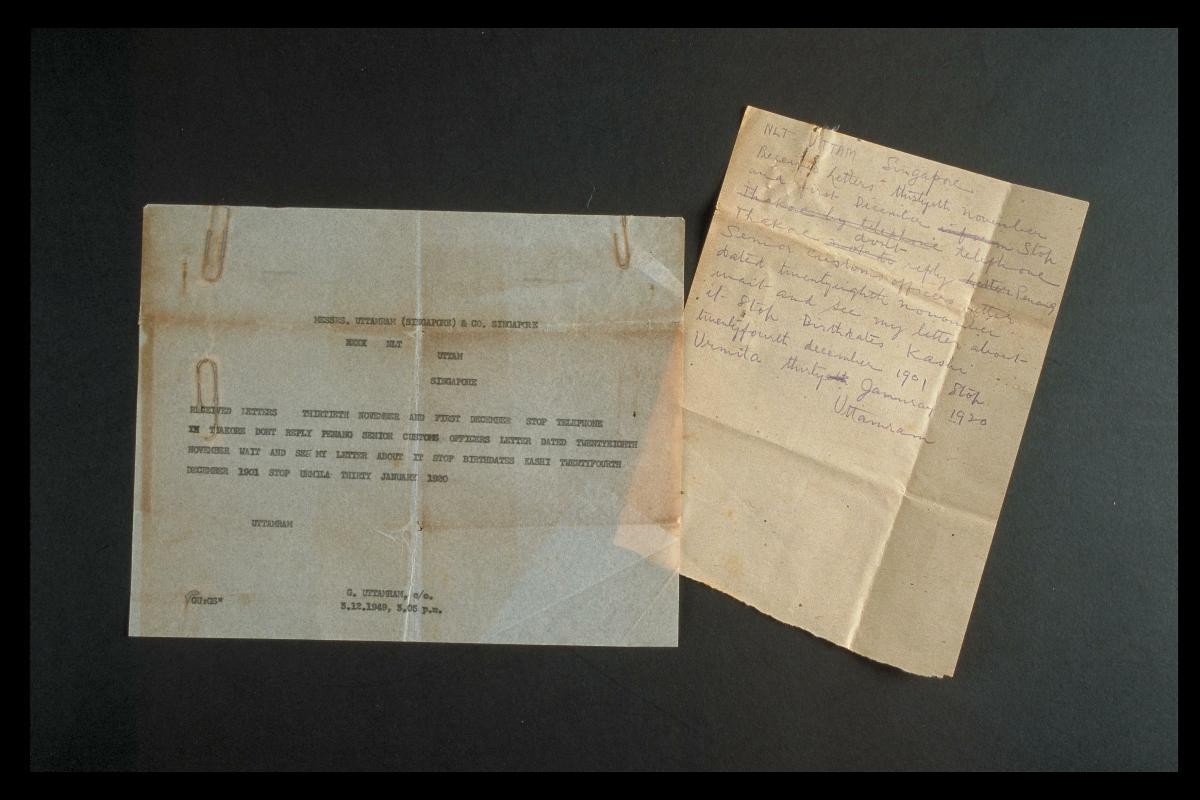 MESSRS. UTTAMRAM (SINGAPORE) & CO. SINGAPORE
XXXX NLT
UTTAM
SINGAPORE
RECEIVED LETTERS THIRTIETH NOVEMBER AND FIRST DECEMBER STOP TELEPHONE
DONT REPLY PENANG SENIOR CUSTOMS OFFICERS LETTER DATED TWENTYEIGHTH
NOVEMBER WAIT AND SEE MY LETTER ABOUT IT STOP BIRTHDATES KASHI TWENTYFOURTH
DECEMBER 1901 STOP URMILA THIRTY JANUARY 1920
UTTAMRAM
GU:GS"
G. UTTAMRAM, c/o.
3.12.1949, 3.05 p.m.
NLT UTTAM Singapore
Letters thirtyeth November
and first December inform Stop
Thakore by telephone telephone
Thakore dont reply letter Penang
Senior customs officers letter
dated twentyeighth november
wait and see my letter about
it Stop Birthdates Kashi
twentyfourth december 1901 Stop
Urmila thirty January 1920
Uttamram